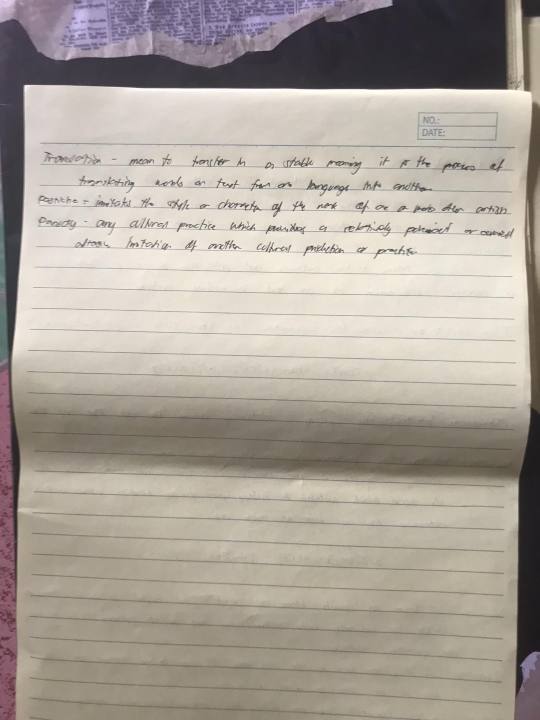 NO.:
DATE:
Translation - mean to transfer in a stable meaning it is the process of
translating words or text from one language into another
Pastiche - imitates the style or character of the work of one or more other artists
Parody - any cultural practice which provides a relatively polemical or
imitation of another cultural production or practice